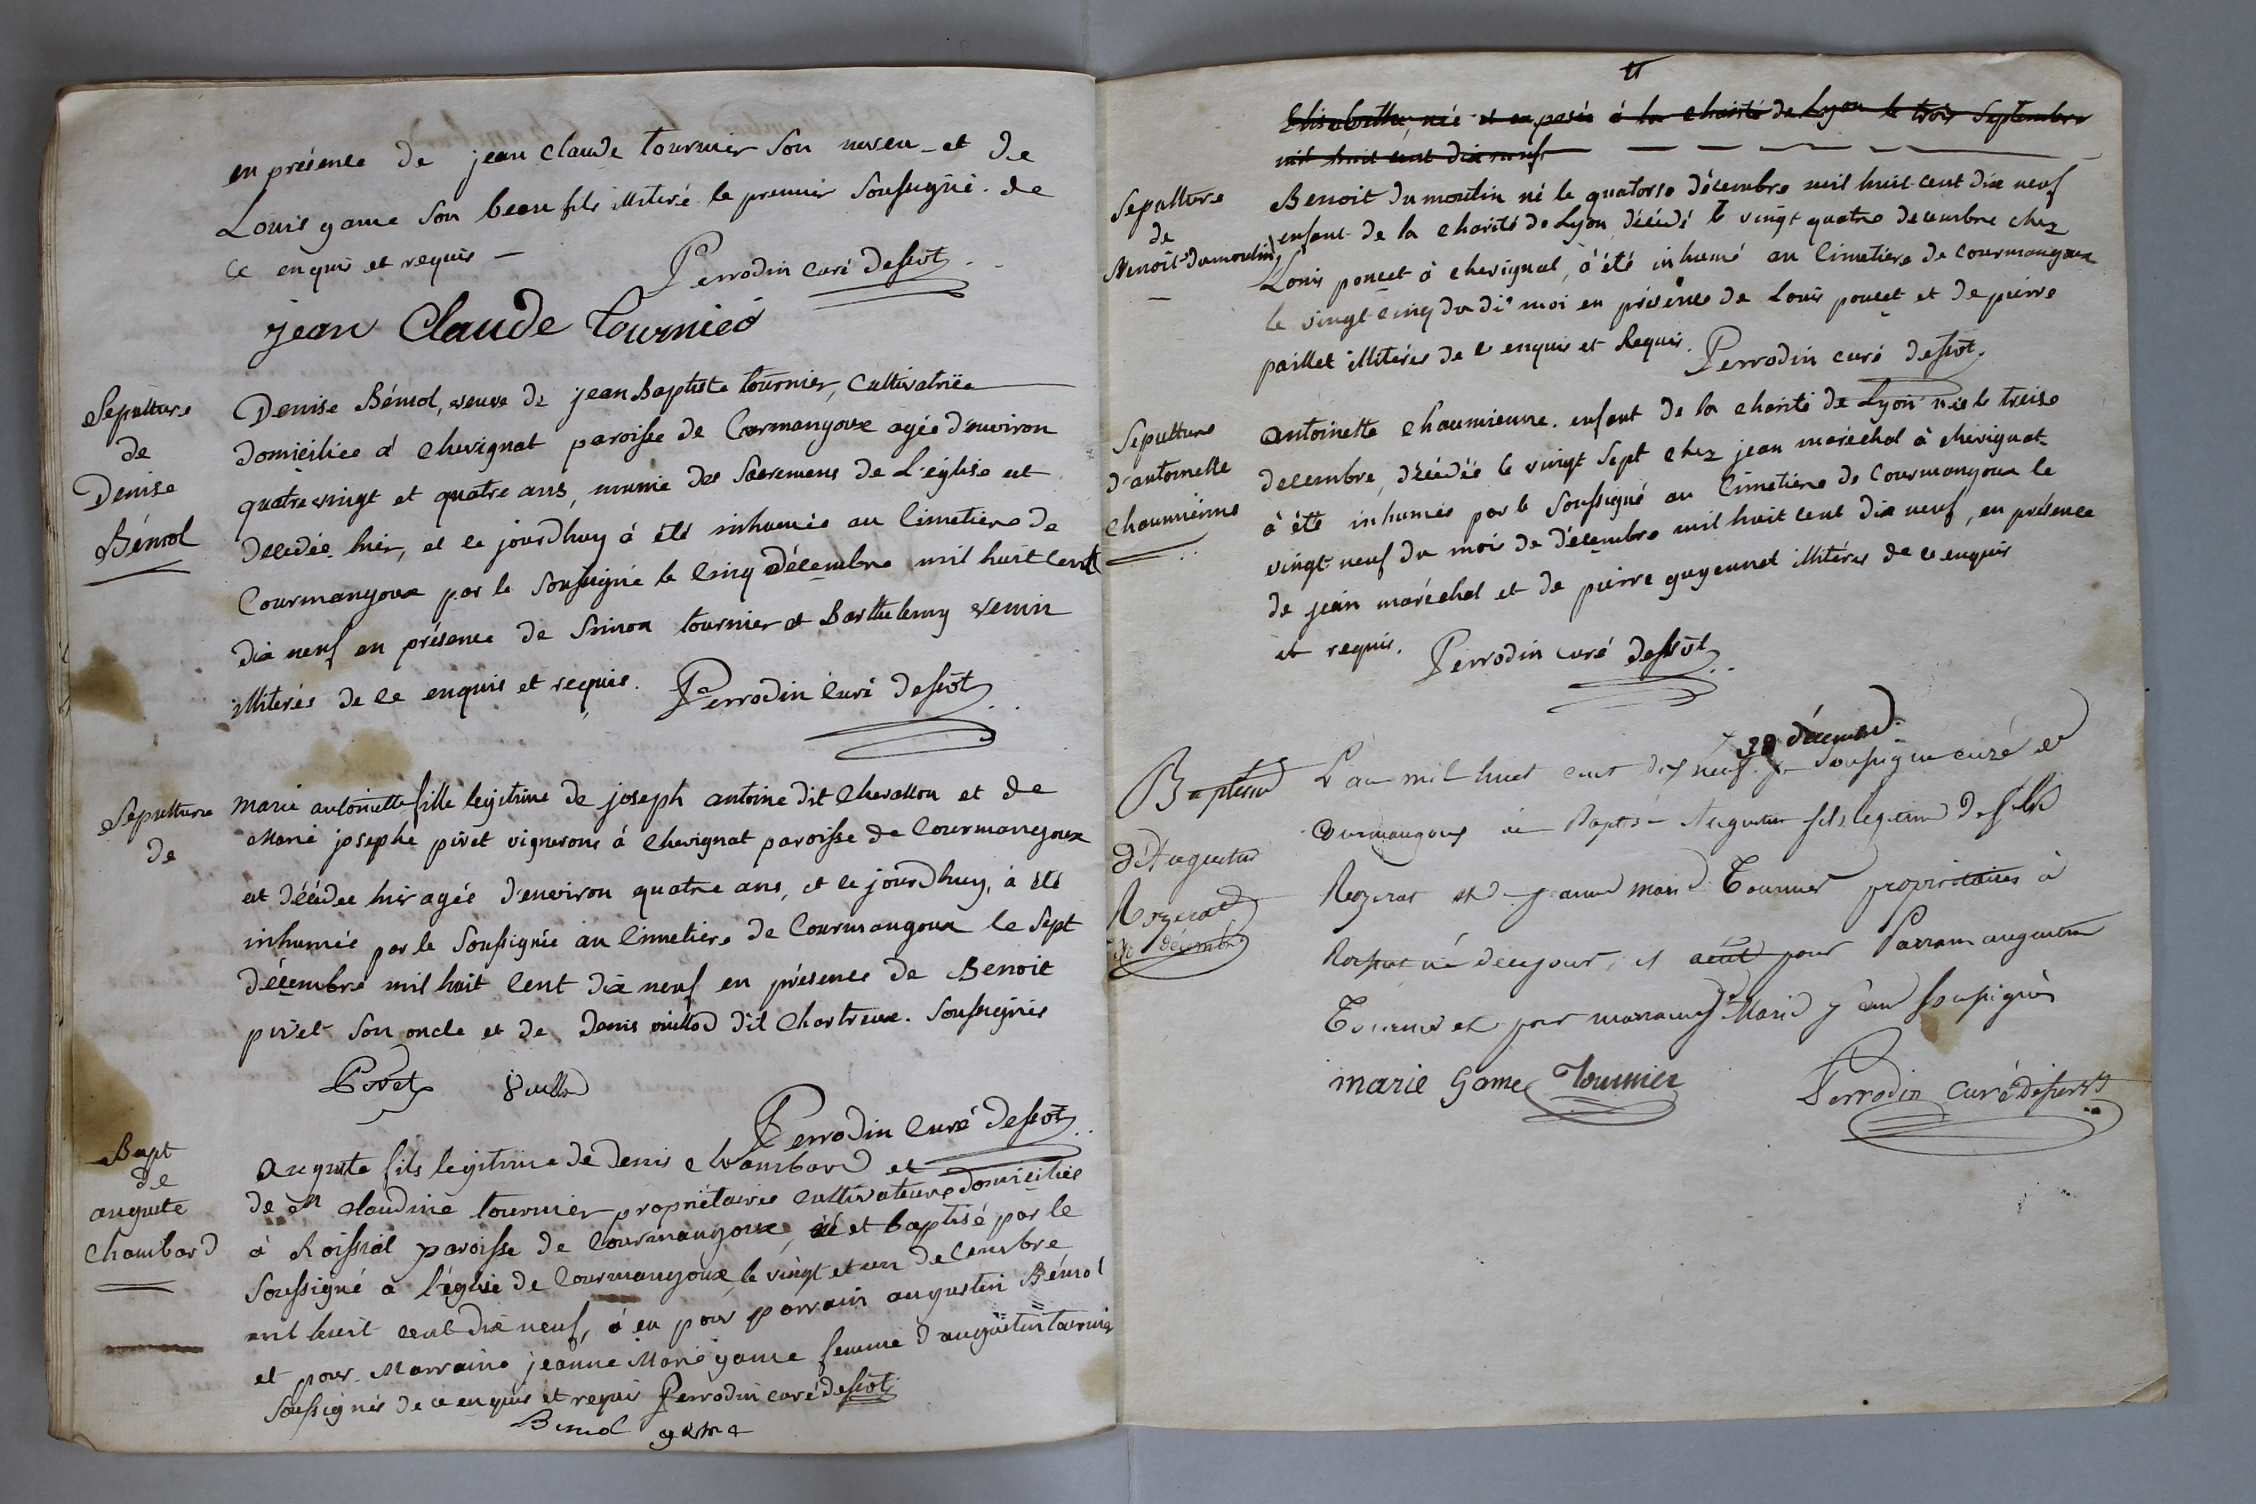 en présence de jean claude tournier son neveu et de
Louis game son beau fils illiteré le premier soussigné. de
ce enquis et requis —
Perrodin curé desscôt
jean Claude Tournier
Sepulture
de
Denise
Bémol
Denise Bémol, veuve de jean Baptiste tournier, cultivatrice
domiciliée à chevignat paroisse de Cormangoux agée d'environ
quatre vingt et quatre ans, munie des sacremens de L'église est
decedée hier, et ce jourdhuy à été inhumée au cimetiere de
Courmangoux par le soussigné le cinq décembre mil huit cent
dix neuf en présence de Simon tournier et Barthelemy venin
illiterés de ce enquis et requis. Perrodin curé desscôt
Sepulture
de
marie antoinette fille legitime de joseph antoine dit chevallon et de
Marie josephe pivet vignerons à chevignat paroisse de Courmangoux
est décédée hier agée d'environ quatre ans, et ce jourdhuy, à été
inhumée par le soussignée au cimetiere de Courmangoux le sept
décembre mil huit cent dix neuf en présence de Benoit
pivet son oncle et de denis vuillod dit Chartreux. soussignés
Pivet
Perrodin curé desscôt
Bapt
de
auguste
chambard
auguste fils legitime de denis chambard et
de M claudine tournier propriétaires cultivateurs domiciliés
à Roissiat paroisse de Courmangoux, né et baptisé par le
soussigné à l'église de Courmangoux le vingt et un decembre
mil huit cent dix neuf, à eu pour parrain augustin Bémol
et pour Marraine jeanne Marie game femme d'augustin tournier
soussignés de ce enquis et requis Perrodin curé desscôt
Bemol game
11
Elisabethe, née et exposée à la charité de Lyon le trois Septembre
mil huit cent dix neuf
Sepulture
de
Benoit dumoulin
Benoit dumoulin né le quatorse décembre mil huit cent dix neuf
enfant de la charité de Lyon, décédé le vingt quatre decembre chez
Louis poncet à chevignat, à été inhumé au cimetiere de courmangoux
le vingt cinq du dit moi en présence de Louis poncet et de pierre
paillet illiterés de ce enquis et Requis. Perrodin curé desscôt
Sepulture
d'antoinette
chaumienne
antoinette chaumienne. enfant de la charité de Lyon née le treise
decembre, décédée le vingt sept chez jean maréchal à chevignat
à été inhumée par le soussigné au cimetiere de Courmangoux le
vingt neuf du mois de décembre mil huit cent dix neuf, en présence
de jean maréchal et de pierre guyennet illiterés de ce enquis
et requis. Perrodin curé desscôt
Baptême
d'Augustin
Rozerat
30 décembre
30 décembre
L'an mil huit cent dix neuf je soussigné curé de
Courmangoux ai Baptisé Augustin fils legitime de
Rozerat et de jeanne marie Tournier propriétaires à
né de ce jour, et a eu pour Parrain augustin
Tournier et pour marraine Marie game soussignés
marie Game Tournier
Perrodin curé desserv